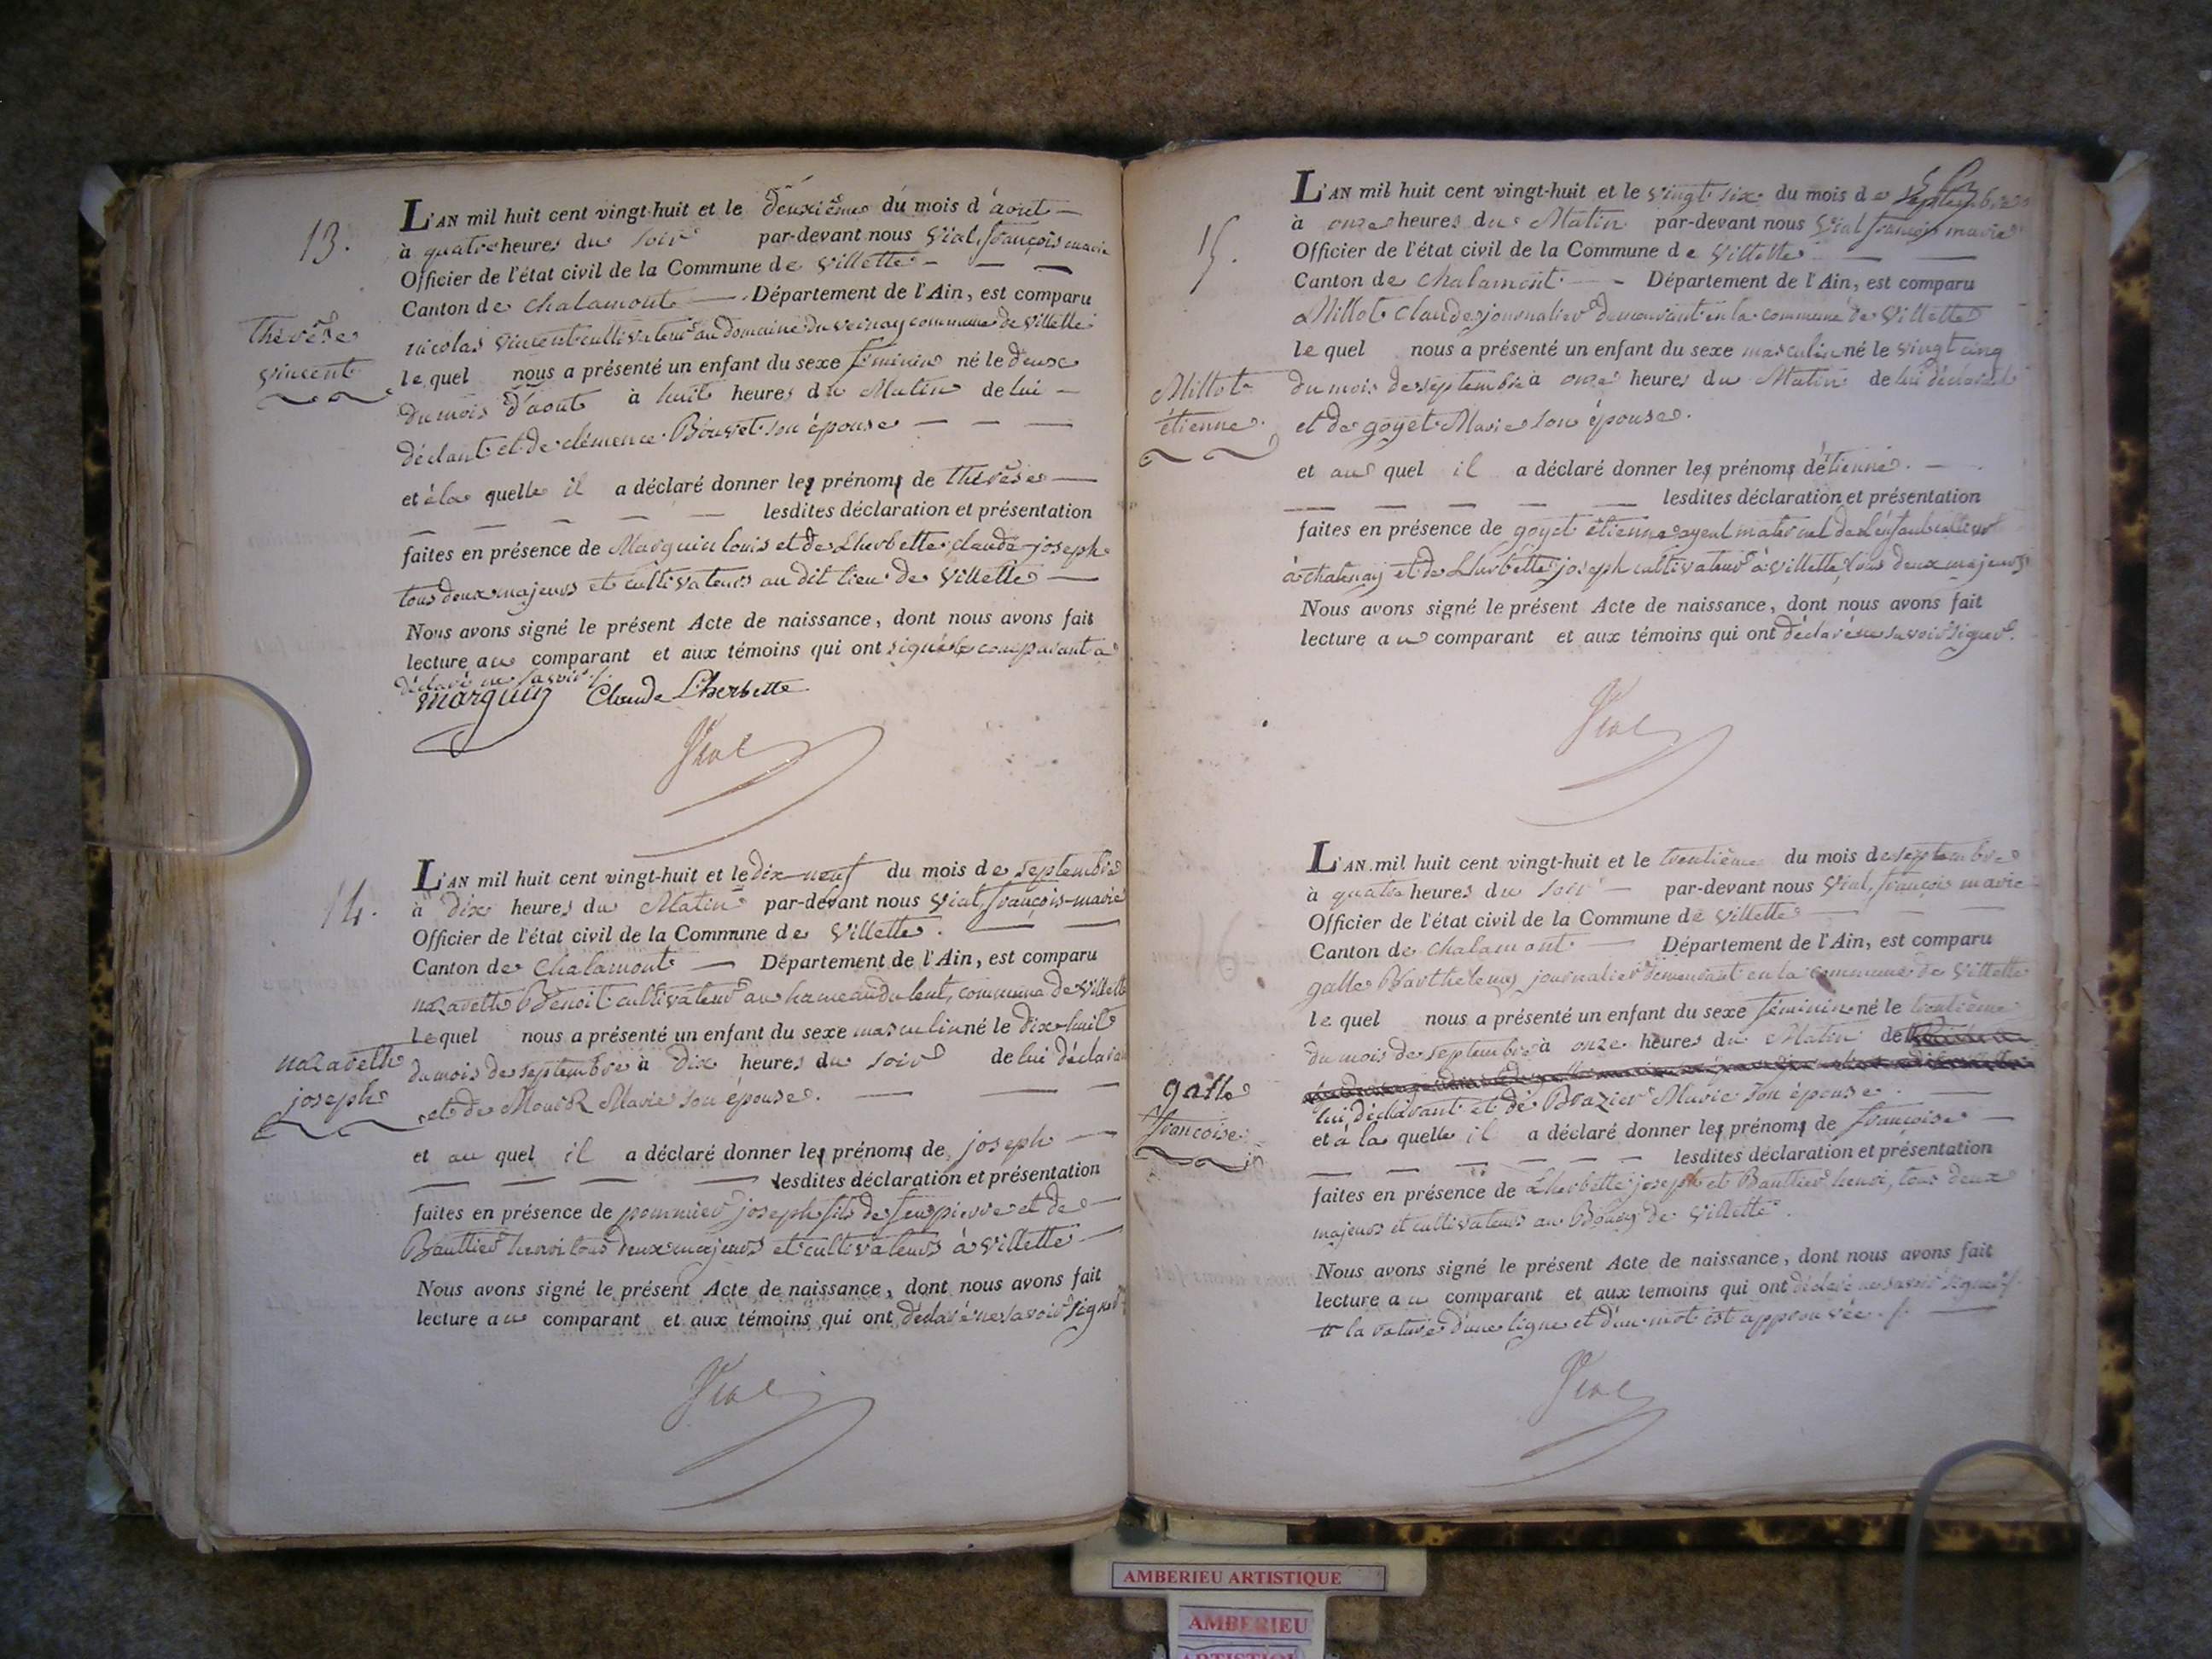 13.
thérèse
vincent
L'AN mil huit cent vingt-huit et le deuxième du mois d'août
à quatre heures du soir par-devant nous Vial, françois marie
Officier de l'état civil de la Commune de Villette
Canton de Chalamont Département de l'Ain, est comparu
nicolas vincent cultivateur au domaine du vernay commune de Villette
lequel nous a présenté un enfant du sexe féminin né le deux
du mois d'août à huit heures du Matin de lui
déclant et de clémence Bouvet son épouse
et à la quelle il a déclaré donner les prénoms de thérèse
lesdites déclaration et présentation
faites en présence de Marguin louis et de Lherbette claude joseph
tous deux majeurs et cultivateurs au dit lieu de Villette
Nous avons signé le présent Acte de naissance, dont nous avons fait
lecture au comparant et aux témoins qui ont signé le comparant a
déclaré ne savoir
marguin Claude Lherbette
Vial
14.
nazarette
joseph
L'AN mil huit cent vingt-huit et le dix-neuf du mois de septembre
à dix heures du Matin par-devant nous Vial, françois-marie
Officier de l'état civil de la Commune de Villette.
Canton de Chalamont Département de l'Ain, est comparu
nazarette Benoit cultivateur au hameau du commune de Villette
Lequel nous a présenté un enfant du sexe masculin né le dix-huit
du mois de septembre à dix heures du soir de lui déclarant
et de Marie son épouse.
et au quel il a déclaré donner les prénoms de joseph
lesdites déclaration et présentation
faites en présence de pommier joseph fils de feu pierre et de
Bauttier henri tous deux majeurs et cultivateurs à Villette
Nous avons signé le présent Acte de naissance, dont nous avons fait
lecture au comparant et aux témoins qui ont déclaré ne savoir signer
Vial
15.
Millot
étienne.
L'AN mil huit cent vingt-huit et le vingt six du mois de septembre
à onze heures du Matin par-devant nous Vial françois marie
Officier de l'état civil de la Commune de Villette
Canton de Chalamont Département de l'Ain, est comparu
Millot Claude journalier demeurant en la commune de Villette
lequel nous a présenté un enfant du sexe masculin né le vingt cinq
du mois de septembre à onze heures du Matin de lui déclarant
et de goyet Marie son épouse.
et au quel il a déclaré donner les prénoms d'étienne.
lesdites déclaration et présentation
faites en présence de goyet étienne ayeul maternel de l'enfant
à chatenay et de Lherbette joseph cultivateur à Villette tous deux majeurs
Nous avons signé le présent Acte de naissance, dont nous avons fait
lecture au comparant et aux témoins qui ont déclaré ne savoir signer.
Vial
galle
françoise
L'AN mil huit cent vingt-huit et le trentième du mois de septembre
à quatre heures du soir par-devant nous Vial, françois marie
Officier de l'état civil de la Commune de Villette
Canton de Chalamont Département de l'Ain, est comparu
galle Barthelemy journalier demeurant en la commune de Villette
lequel nous a présenté un enfant du sexe féminin né le trentième
du mois de septembre à onze heures du Matin de
lui déclarant et de Brazier Marie son épouse.
et à la quelle il a déclaré donner les prénoms de françoise
lesdites déclaration et présentation
faites en présence de Lherbette joseph et Bauttier henri, tous deux
majeurs et cultivateurs au Bourg de Villette.
Nous avons signé le présent Acte de naissance, dont nous avons fait
lecture au comparant et aux temoins qui ont déclaré ne savoir signer
la rature d'une ligne et d'un mot est approuvée.
Vial
AMBERIEU ARTISTIQUE
AMBERIEU
ARTISTIQUE